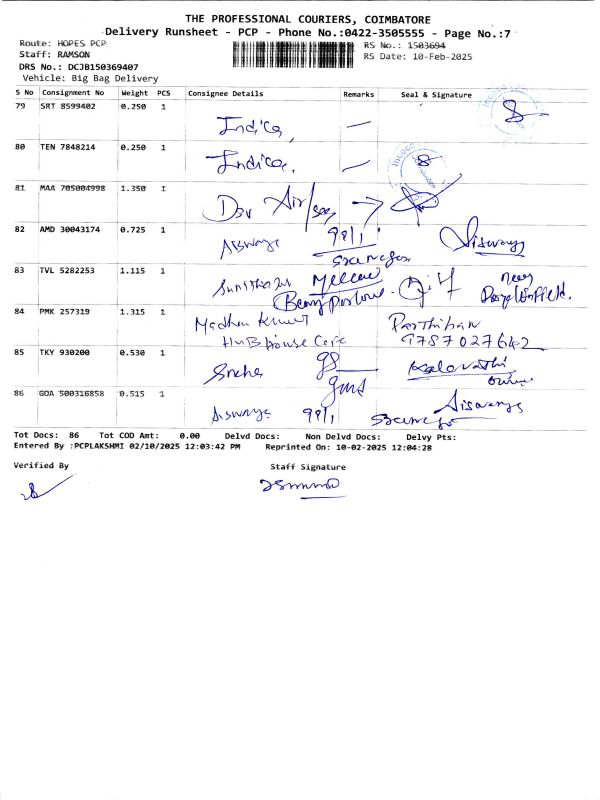 THE PROFESSIONAL COURIERS, COIMBATORE
Delivery Runsheet - PCP - Phone No.:0422-3505555 - Page No.:7
Route: HOPES PCP
Staff: RAMSON
DRS No.: DCJB150369407
Vehicle: Big Bag Delivery
RS No.: 1503694
RS Date: 10-Feb-2025
S No Consignment No Weight PCS Consignee Details Remarks Seal & Signature
79 SRT 8599402 0.250 1 Indica,
80 TEN 7848214 0.250 1 Indica,
81 MAA 705004998 1.350 1 Dsv Air/sea
82 AMD 30043174 0.725 1 Aiswarya 99/1 Aiswarya
83 TVL 5282253 1.115 1
84 PMK 257319 1.315 1 Madhan Kumar Parthiban
HuB House Cafe 9787027642
85 TKY 930200 0.530 1 Sneha 98
86 GOA 500316858 0.515 1 Aiswarya 99/1 Aiswarya
Tot Docs: 86 Tot COD Amt: 0.00 Delvd Docs: Non Delvd Docs: Delvy Pts:
Entered By :PCPLAKSHMI 02/10/2025 12:03:42 PM Reprinted On: 10-02-2025 12:04:28
Verified By Staff Signature